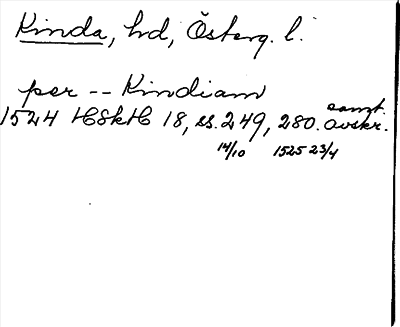 Kinda, hd, Österg. l.
per -- Kindiam
1524 HSkH 18, ss. 249, 280. samt. avskr.
14/10 1525 23/4